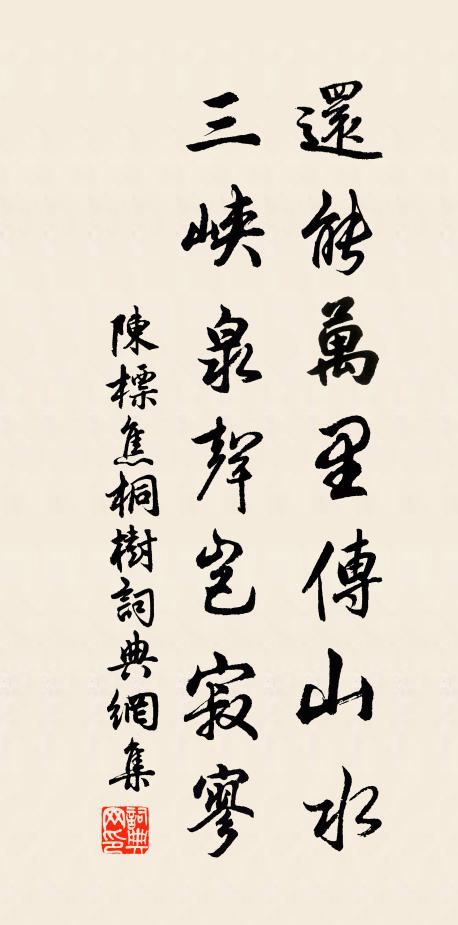 還能萬里傳山水
三峽泉聲豈寂寥
陳標焦桐樹詞典網集
詞典網印